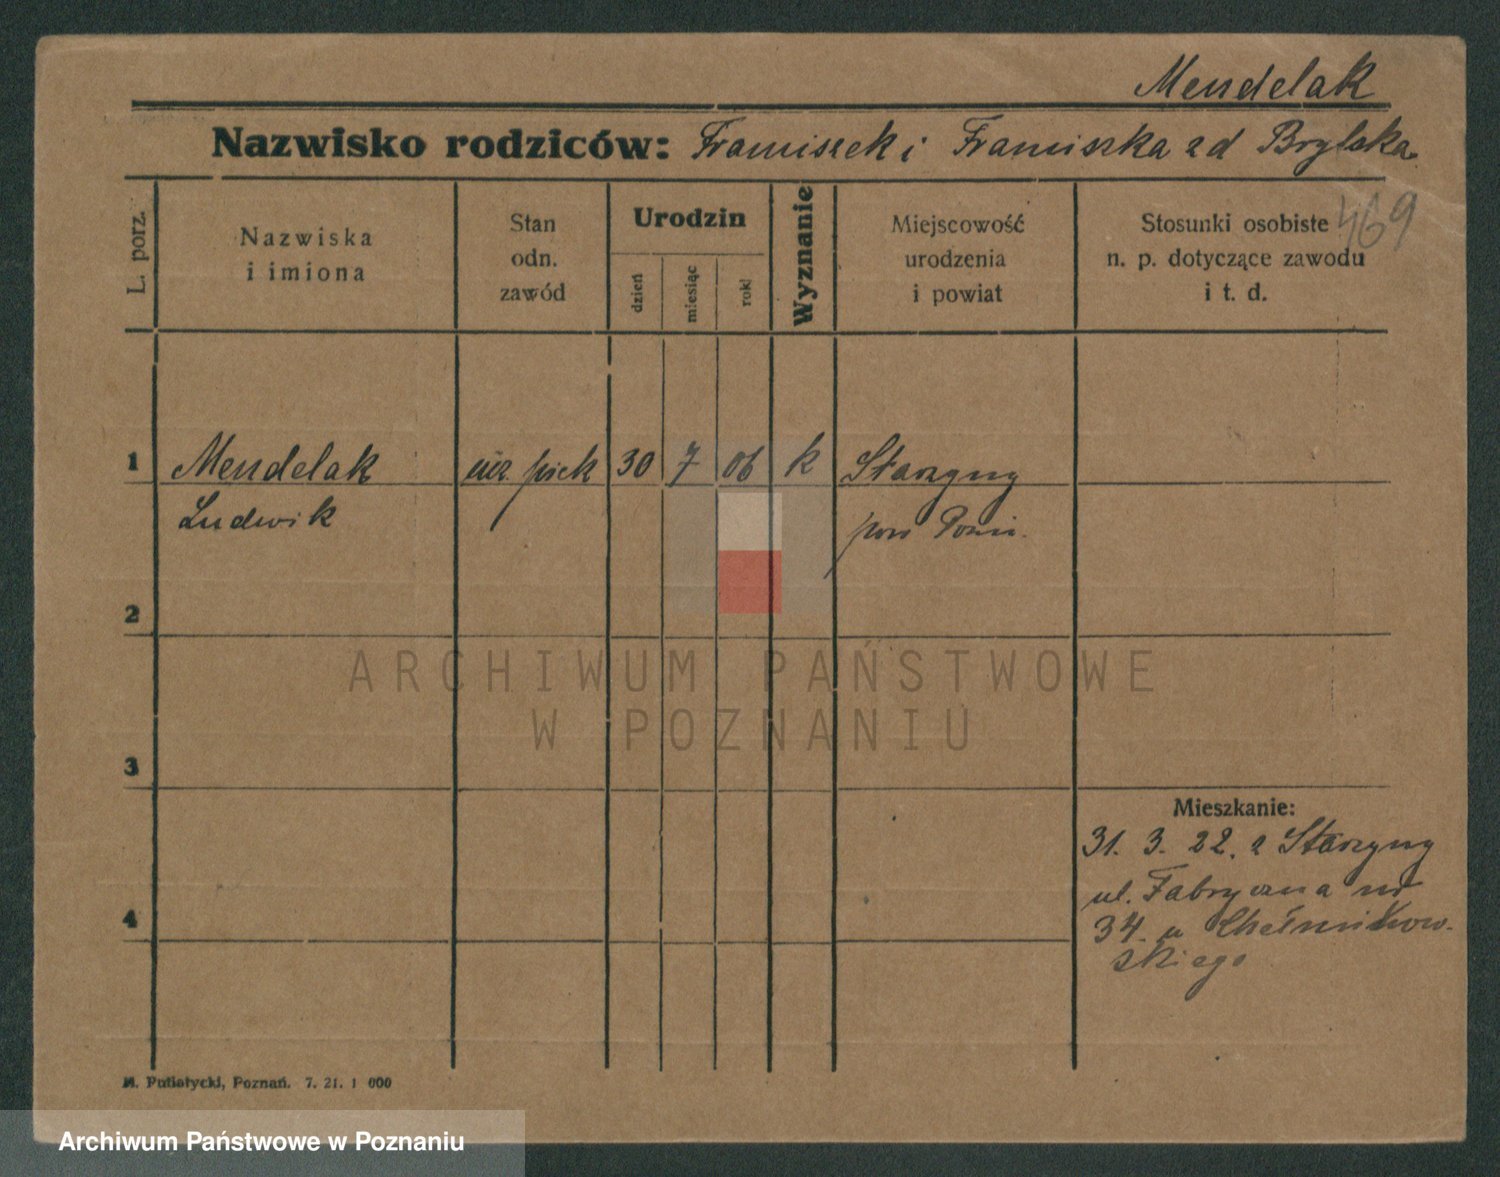 Mendelak
Nazwisko rodziców: Franciszek i Franciszka zd Brylska
469
L. porz.
Nazwiska
i imiona
Stan
odn.
zawód
Urodzin
dzień
miesiąc
rok
Wyznanie
Miejscowość
urodzenia
i powiat
Stosunki osobiste
n. p. dotyczące zawodu
i t. d.
1 Mendelak ucz. piek 30 7 06 k Starzyny
Ludwik pow Pozn.
2
ARCHIWUM PAŃSTWOWE
W POZNANIU
3
Mieszkanie:
31. 3. 22. z Starzyny
ul. Fabryczna nr
4
34. u Chełmikow-
skiego
M. Putiatycki, Poznań. 7. 21. 1 000
Archiwum Państwowe w Poznaniu